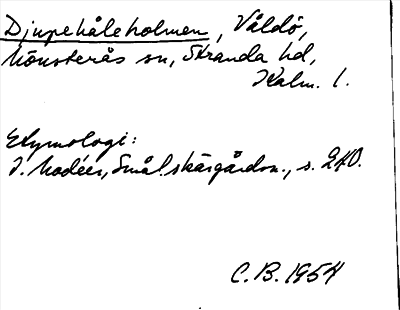 Djupehåleholmen, Våldö,
Mönsterås sn, Stranda hd,
Kalm. l.
Etymologi:
I. Modéer, Smål. skärgårdsn., s. 240.
C.B. 1954